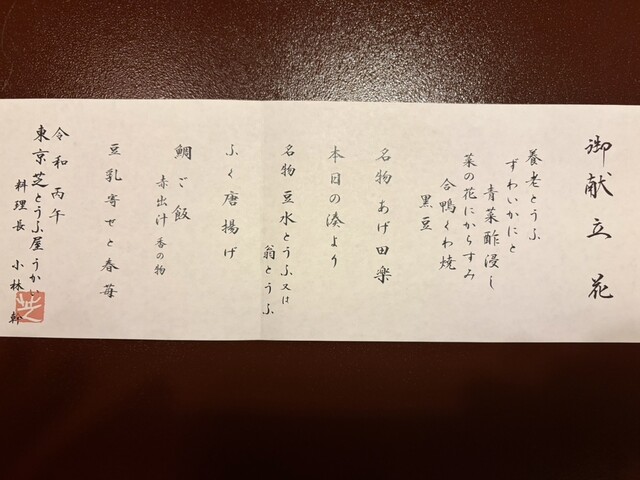 御献立 花
養老とうふ
ずわいかにと
青菜酢浸し
菜の花にからすみ
合鴨くわ焼
黒豆
名物 あげ田楽
本日の湊より
名物 豆水とうふ又は
翁とうふ
ふく唐揚げ
鯛ご飯
赤出汁 香の物
豆乳寄せと春苺
令和 丙午
東京芝とうふ屋うかい
料理長 小林 幹
芝